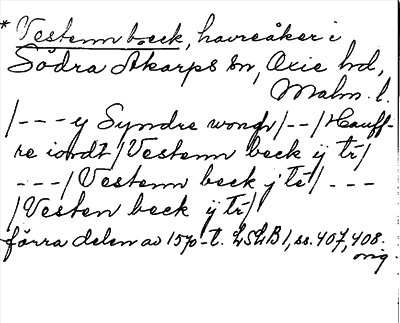 * Vestenn beck, havreåker i
Södra Åkarps sn, Oxie hd,
Malm. l.
/---y Syndre wongh/--/Hauff-
re iordt/Vestenn beck ÿ tr/
---/Vestenn beck j te/---
/Vesten beck ÿ tr/
förra delen av 1570-t. LSLB 1, ss. 407, 408.
orig.